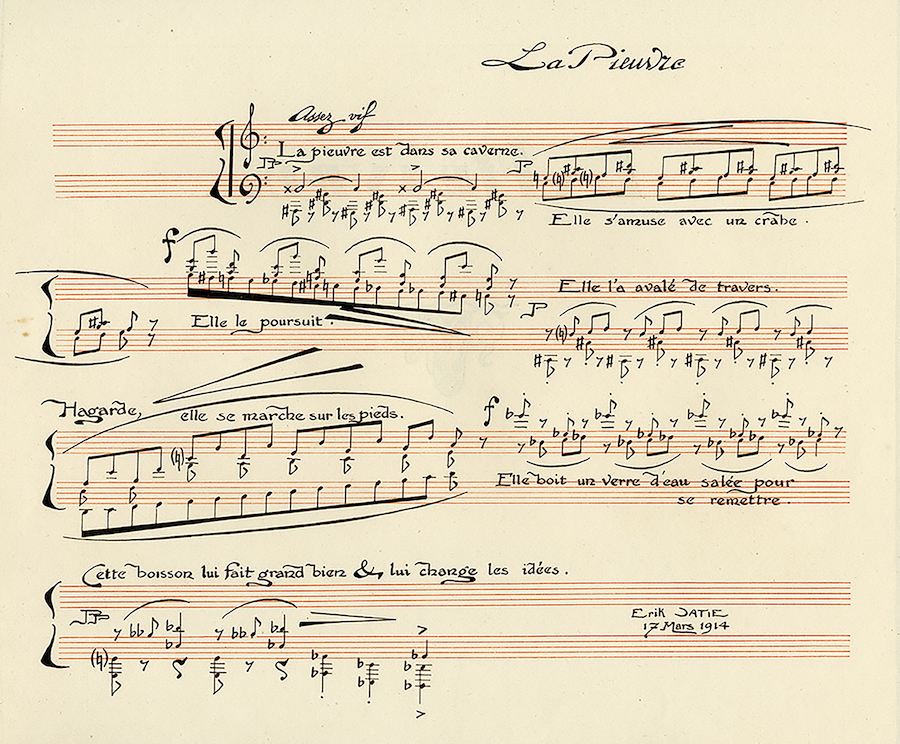 La Pieuvre
Assez vif
La pieuvre est dans sa caverne.
PP
P
Elle s'amuse avec un crabe.
f
Elle l'a avalé de travers.
Elle le poursuit.
P
Hagarde, elle se marche sur les pieds.
f
Elle boit un verre d'eau salée pour
se remettre.
Cette boisson lui fait grand bien & lui change les idées.
PP
Erik SATIE
17 Mars 1914